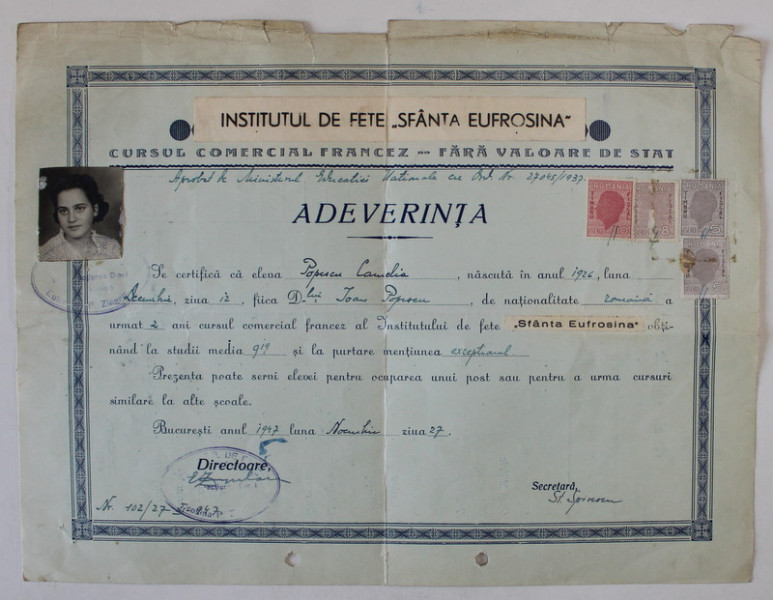 INSTITUTUL DE FETE „SFÂNTA EUFROSINA"
CURSUL COMERCIAL FRANCEZ — FĂRĂ VALOARE DE STAT
Aprobat de Ministerul Educatiei Nationale cu Ord. Nr. 27045/1937.
ADEVERINȚA
ROMANIA
Se certifică că eleva Popescu Camelia, născută în anul 1926, luna
Decembrie, ziua 12, fiica D-lui Ioan Popescu, de naționalitate română a
urmat 2 ani cursul comercial francez al Institutului de fete „Sfânta Eufrosina" obți-
nând la studii media 9 și la purtare mențiunea excepțional
Prezenta poate servi elevei pentru ocuparea unui post sau pentru a urma cursuri
similare la alte școale.
București anul 1947 luna Noembrie ziua 27.
Directoare,
Secretară,
Nr. 102/27